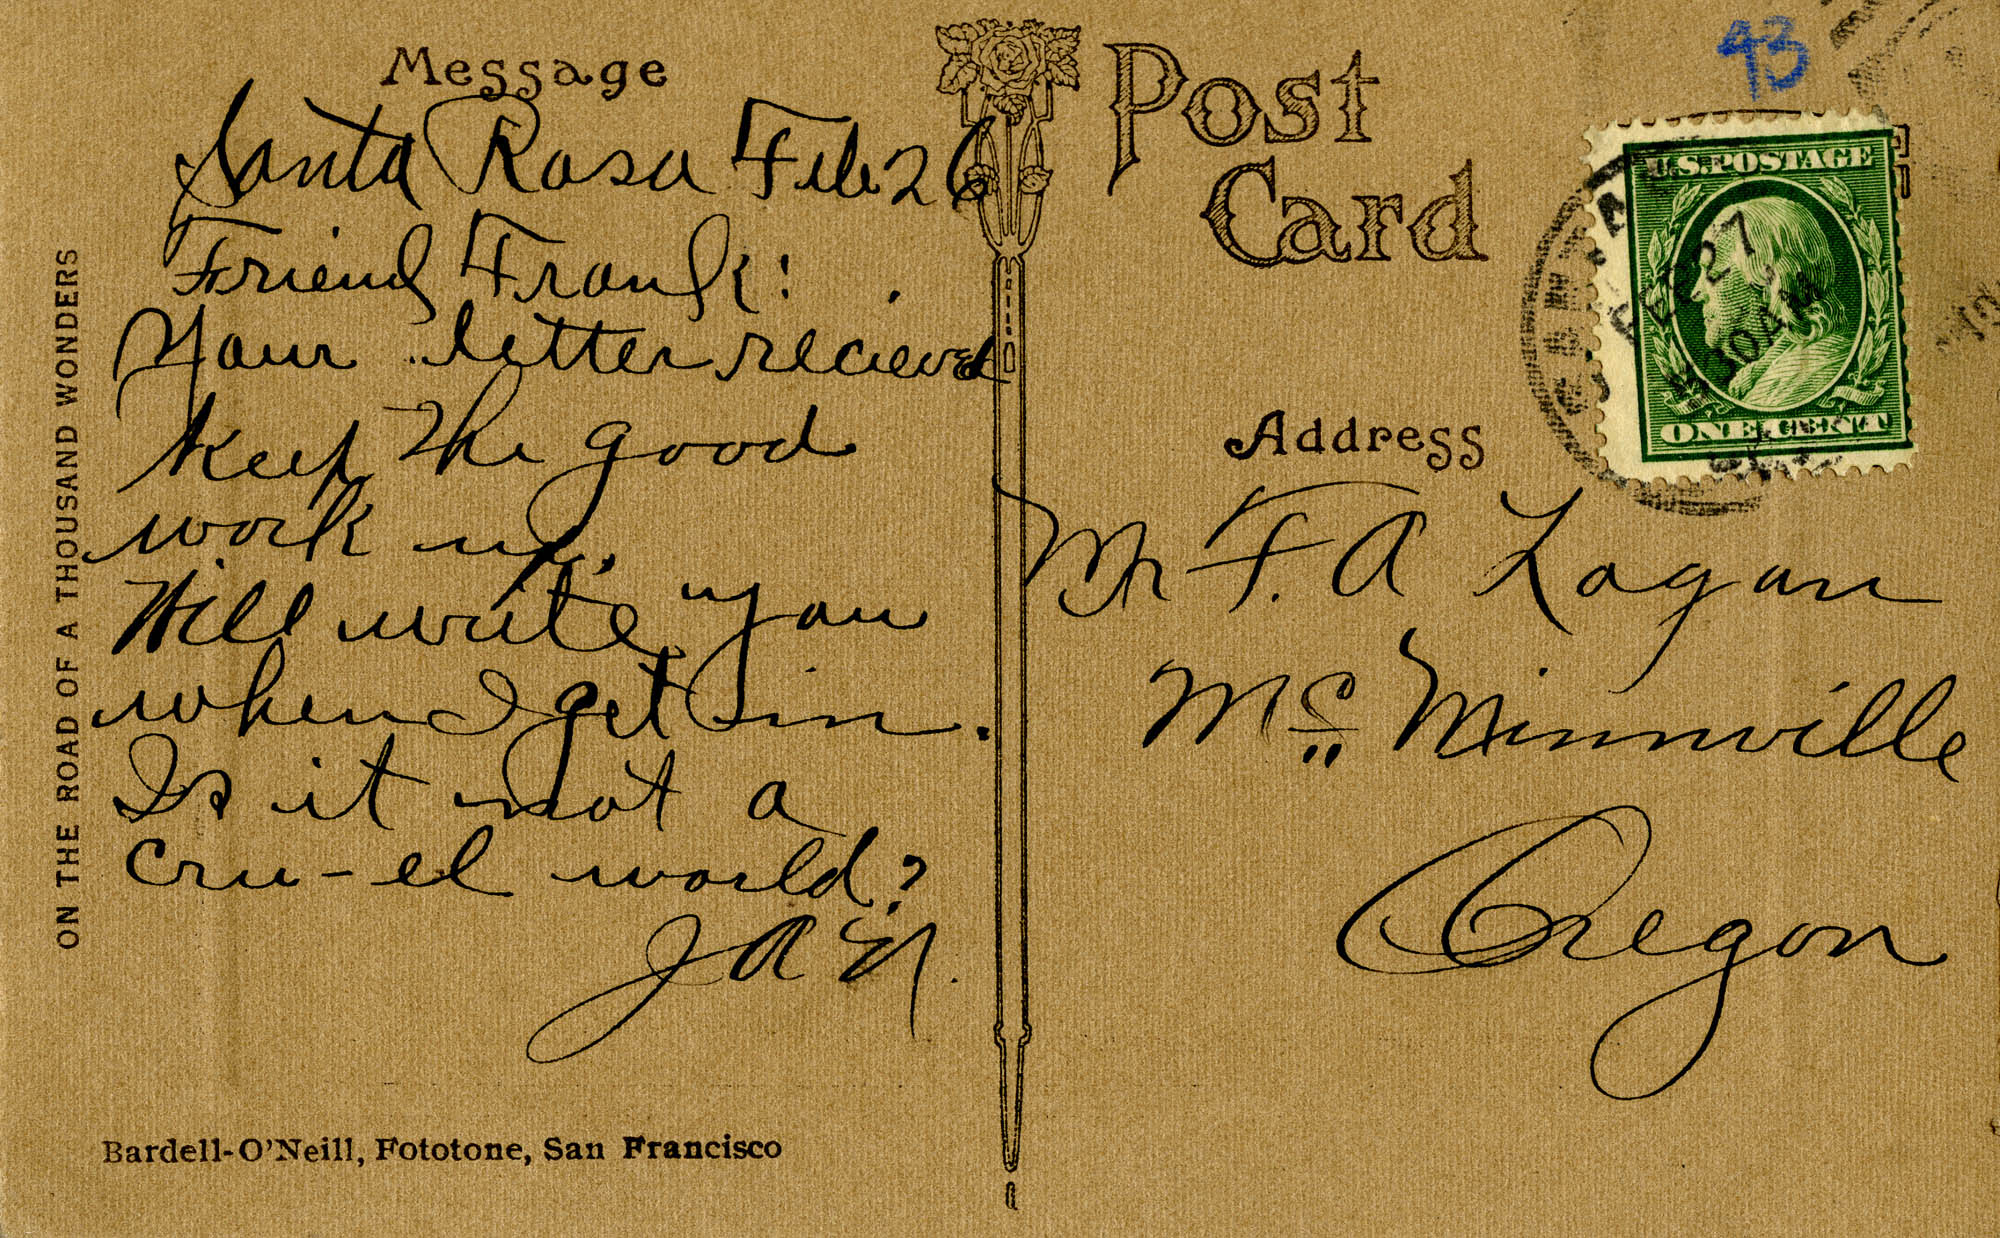 Message
Santa Rosa Feb. 26
Friend Frank!
Your letter recieved
Keep the good
work up.
Will write you
when I get in.
Is it not a
cru-el world?
J A N.
ON THE ROAD OF A THOUSAND WONDERS
Bardell-O'Neill, Fototone, San Francisco
Post
Card
43
U.S. POSTAGE
ONE CENT
FEB 27
30 AM
Address
Mr F. A Logan
Mc Minnville
Oregon